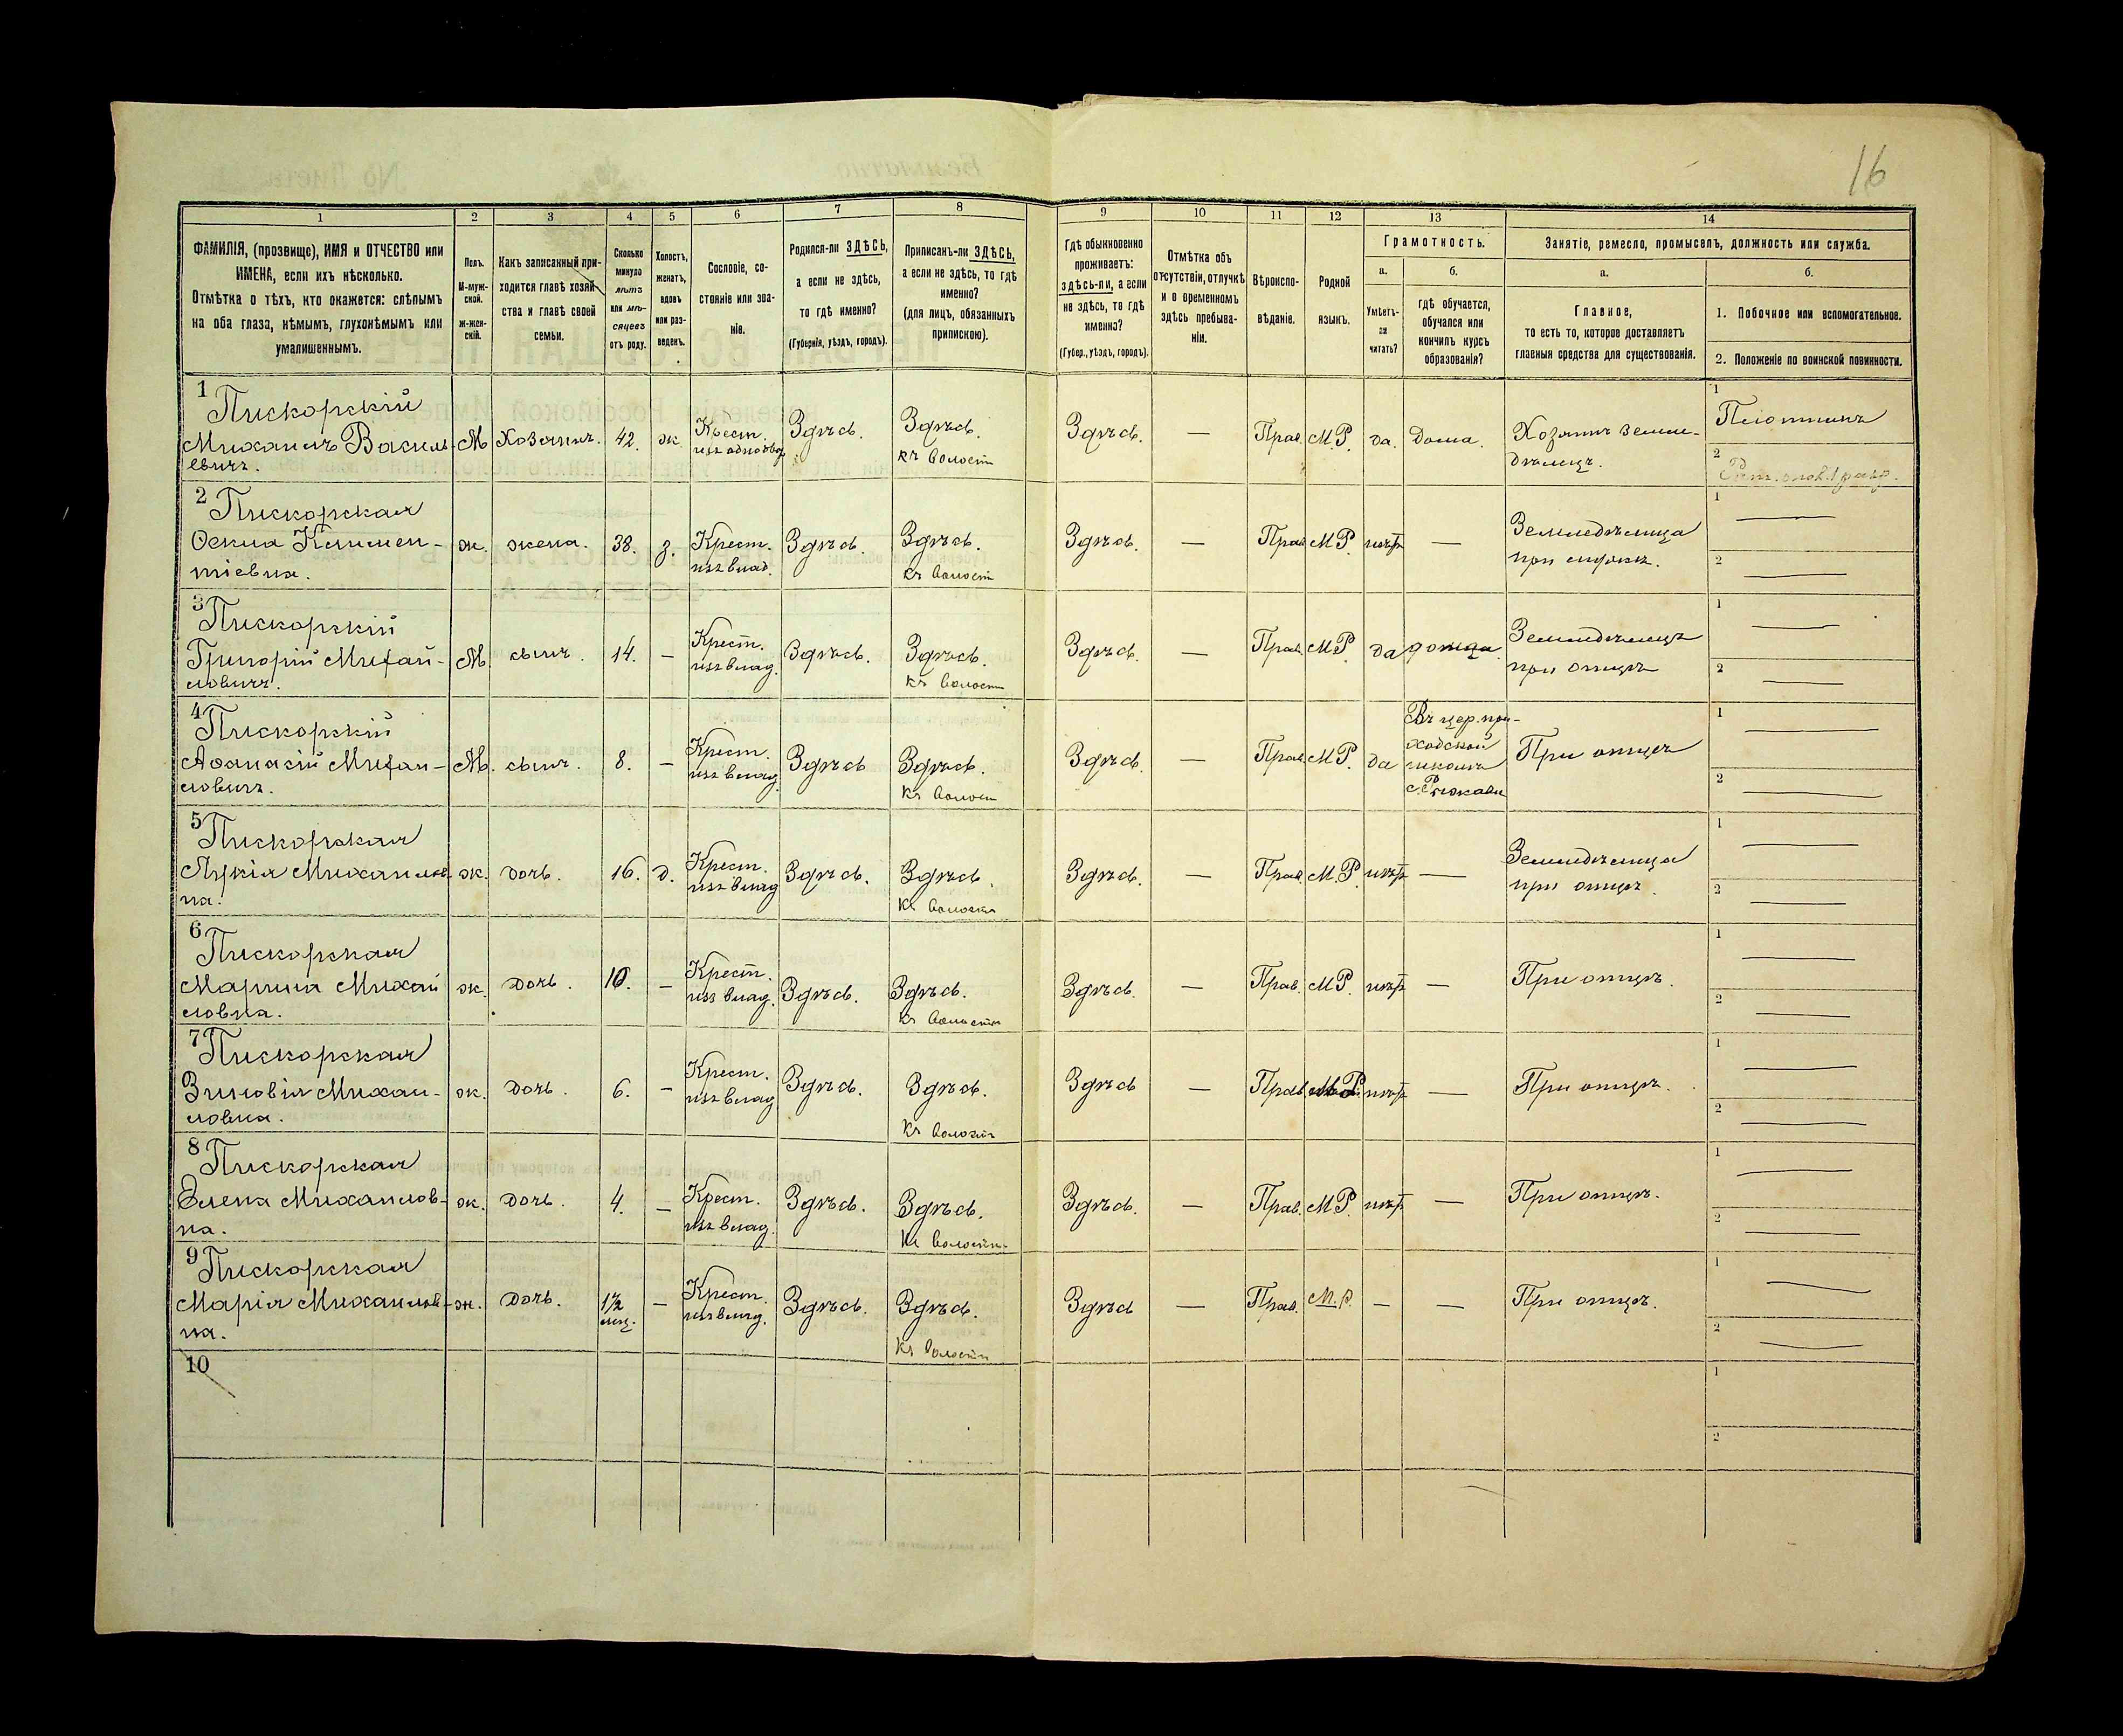 16
1 2 3 4 5 6 7 8 9 10 11 12 13 14
ФАМИЛІЯ, (прозвище), ИМЯ и ОТЧЕСТВО или
ИМЕНА, если ихъ нѣсколько.
Отмѣтка о тѣхъ, кто окажется: слѣпымъ
на оба глаза, нѣмымъ, глухонѣмымъ или
умалишеннымъ.
Полъ.
М-муж-
ской.
Ж-жен-
скій.
Какъ записанный при-
ходится главѣ хозяй
ства и главѣ своей
семьи.
Сколько
минуло
лѣтъ
или мѣ-
сяцевъ
отъ роду.
Холостъ,
женатъ,
вдовъ
или раз-
веденъ.
Сословіе, со-
стояніе или зва-
ніе.
Родился-ли ЗДѢСЬ,
а если не здѣсь,
то гдѣ именно?
(Губернія, уѣздъ, городъ).
Приписанъ-ли ЗДѢСЬ,
а если не здѣсь, то гдѣ
именно?
(для лицъ, обязанныхъ
припискою).
Гдѣ обыкновенно
проживаетъ:
здѣсь-ли, а если
не здѣсь, то гдѣ
именно?
(Губер., уѣздъ, городъ).
Отмѣтка объ
отсутствіи, отлучкѣ
и о временномъ
здѣсь пребыва-
ніи.
Вѣроиспо-
вѣданіе.
Родной
языкъ.
Грамотность.
а.
Умѣетъ-
ли
читать?
б.
гдѣ обучается,
обучался или
кончилъ курсъ
образованія?
Занятіе, ремесло, промыселъ, должность или служба.
а.
Главное,
то есть то, которое доставляетъ
главныя средства для существованія.
б.
1. Побочное или вспомогательное.
2. Положеніе по воинской повинности.
1 Пискорскій
Михаилъ Василь-
евичъ.
М Хозяинъ. 42. ж. Крест.
Здѣсь. Здѣсь.
къ волости
Здѣсь. — Прав. М.Р. да. Дома. Хозяинъ земле-
дѣлецъ.
1 Плотникъ
2
2 Пискорская
Климен-
тіевна.
ж. жена. 38. з. Крест.
изъ влад.
Здѣсь. Здѣсь.
къ волости
Здѣсь. — Прав. М.Р. нѣтъ — Земледѣлица
при
1 —
2 —
3 Пискорскій
Григорій Михай-
ловичъ.
М. сынъ. 14. — Крест.
изъ влад.
Здѣсь. Здѣсь.
къ волости
Здѣсь. — Прав. М.Р. да дома Земледѣлецъ
при отцѣ
1 —
2 —
4 Пискорскій
Аѳанасій Михаи-
ловичъ.
М. сынъ. 8. — Крест.
изъ влад.
Здѣсь Здѣсь.
къ волости
Здѣсь. — Прав. М.Р. да Въ цер. при-
ходской
школѣ
При отцѣ
1 —
2 —
5 Пискорская
Михаилов-
на.
ж. дочь. 16. д. Крест.
изъ влад
Здѣсь. Здѣсь.
къ волости
Здѣсь. — Прав. М.Р. нѣтъ — Земледѣлица
при отцѣ.
1 —
2 —
6 Пискорская
Марина Михаи
ловна.
ж. дочь. 10. — Крест.
изъ влад.
Здѣсь. Здѣсь.
къ волости
Здѣсь. — Прав. М.Р. нѣтъ — При отцѣ.
1 —
2 —
7 Пискорская
Зиновія Михаи-
ловна.
ж. дочь. 6. — Крест.
изъ влад
Здѣсь. Здѣсь.
къ волости
Здѣсь — Прав. М.Р. нѣтъ — При отцѣ.
1 —
2 —
8 Пискорская
Елена Михаилов-
на.
ж. дочь. 4. — Крест.
изъ влад.
Здѣсь. Здѣсь.
къ волости
Здѣсь. — Прав. М.Р. нѣтъ — При отцѣ.
1 —
2 —
9 Пискорская
Марія Михаилов-
на.
ж. дочь. — Крест.
изъ влад.
Здѣсь. Здѣсь.
къ волости
Здѣсь — Прав. М.Р. — — При отцѣ.
1 —
2 —
10
1
2